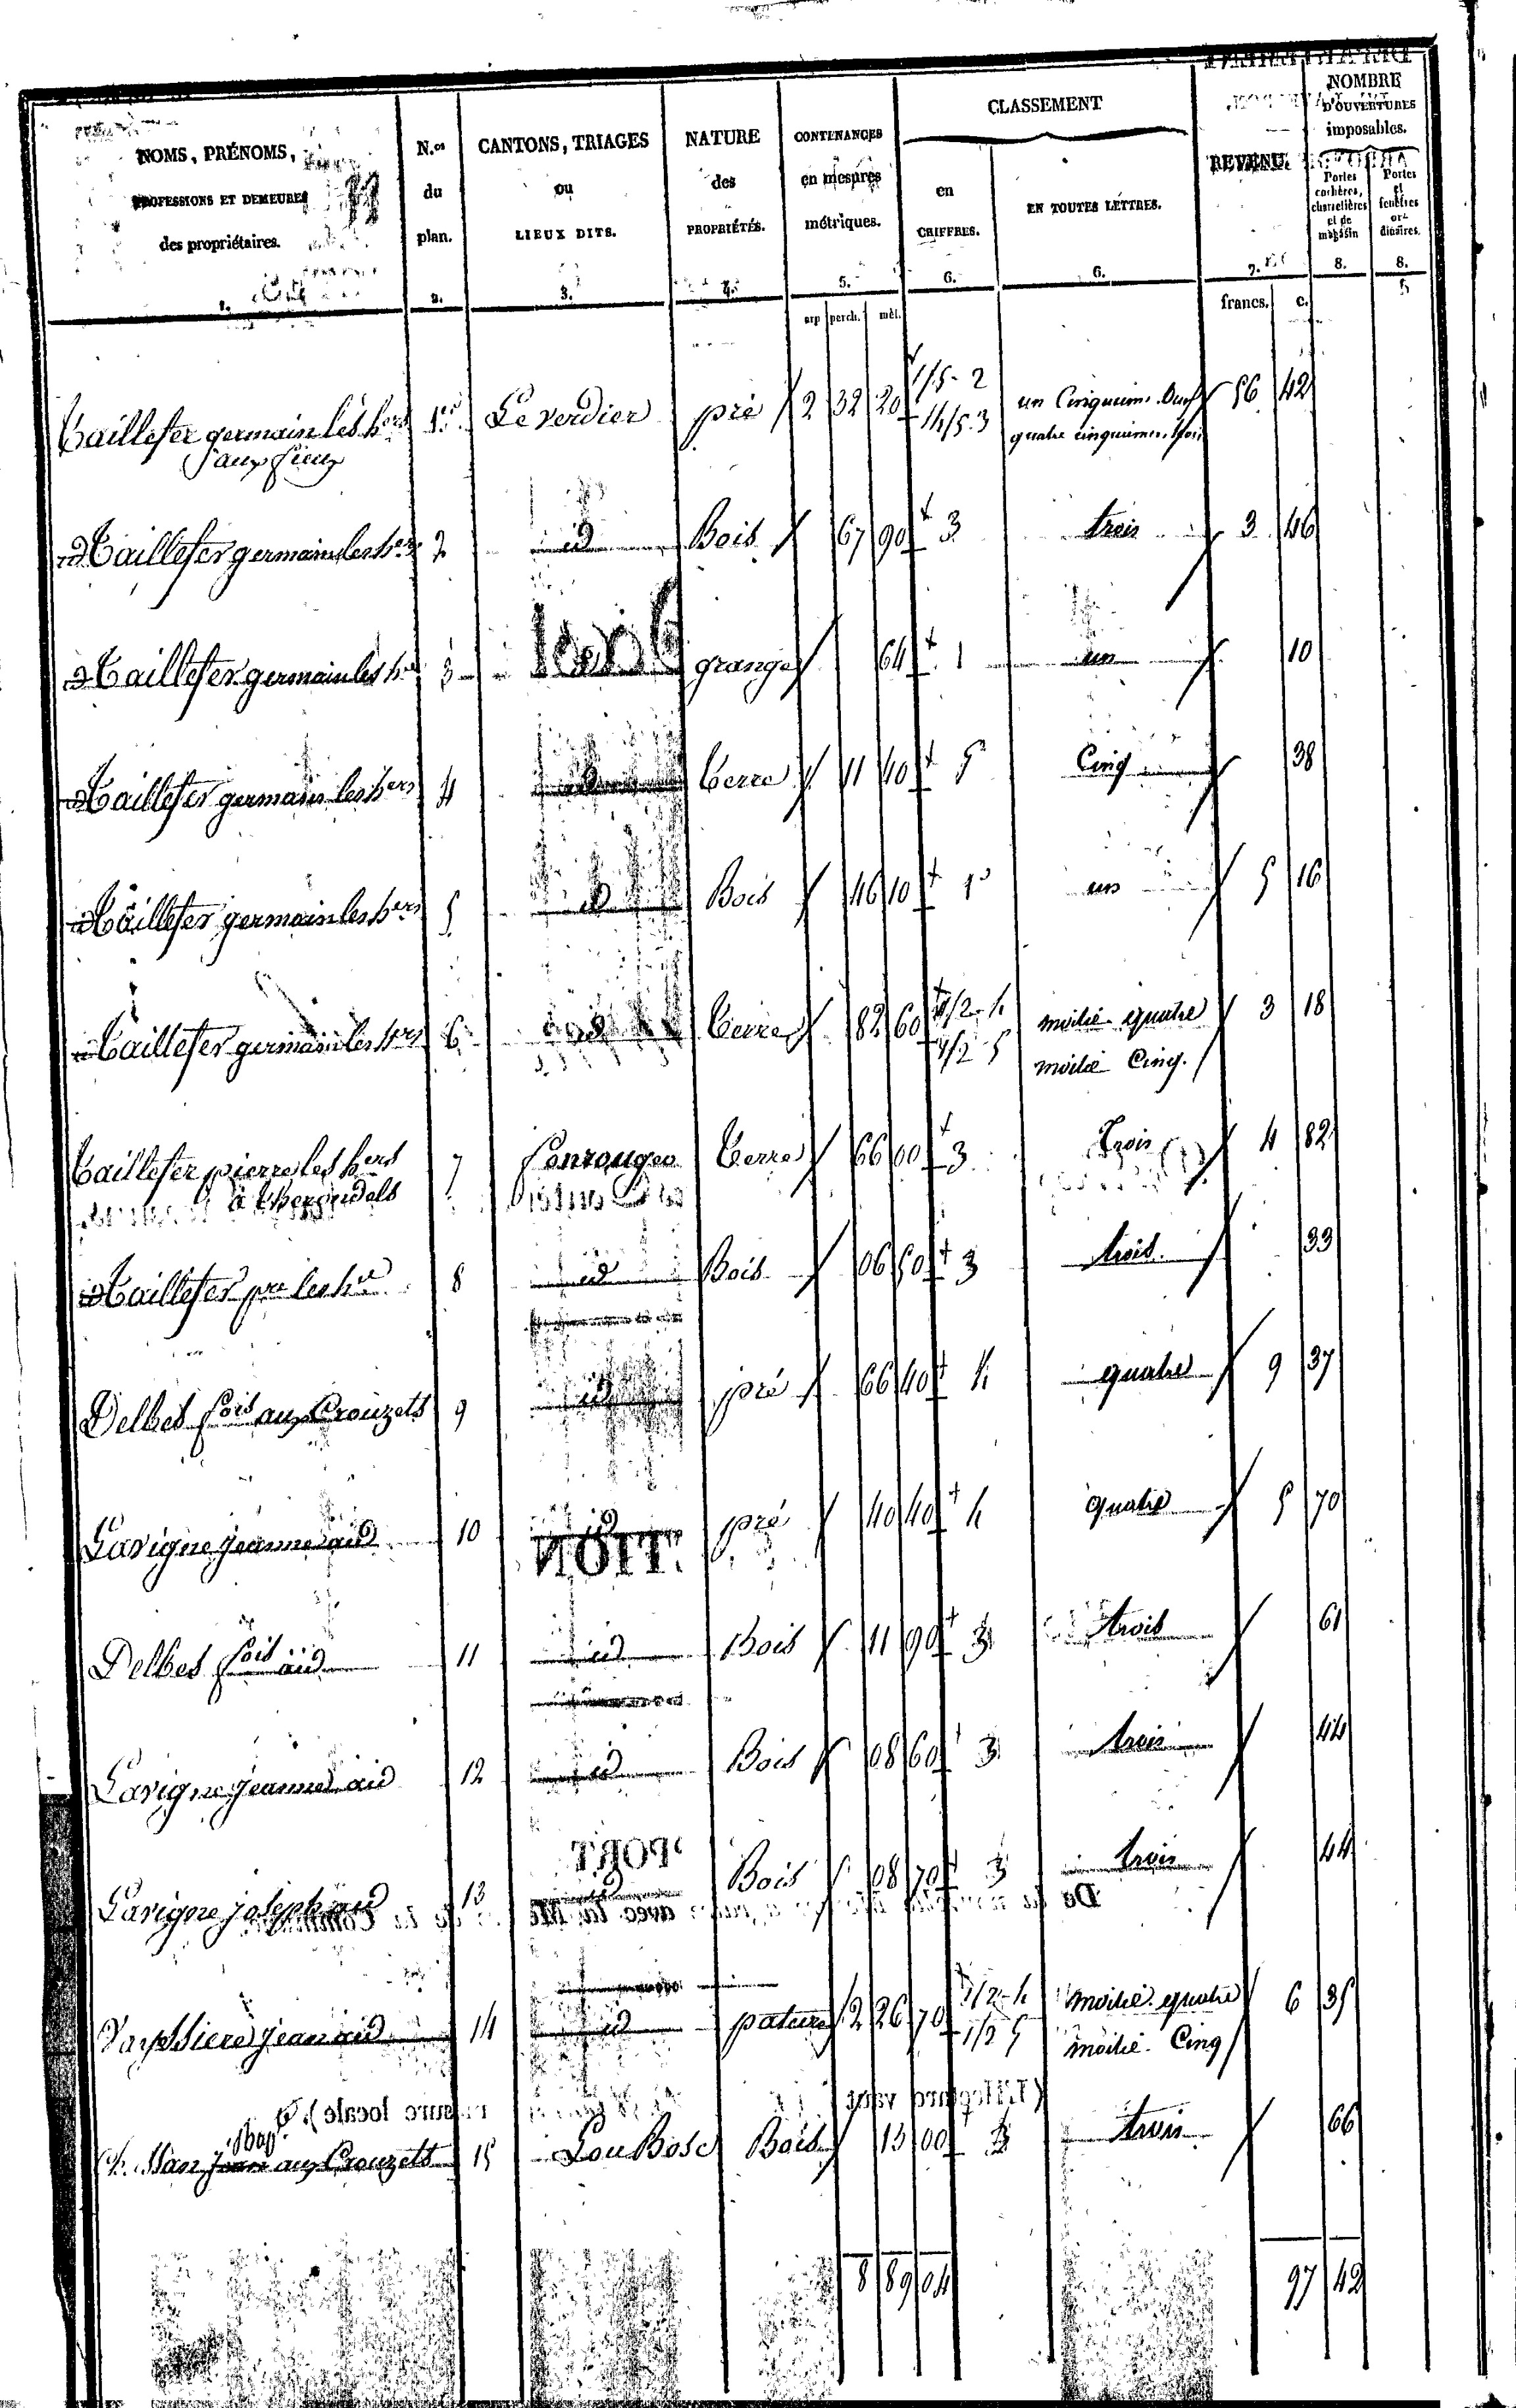 NOMS, PRÉNOMS, PROFESSIONS ET DEMEURES des propriétaires. 1.
N.os du plan. 2.
CANTONS, TRIAGES ou LIEUX DITS. 3.
NATURE des PROPRIÉTÉS. 4.
CONTENANCES en mesures métriques. 5.
CLASSEMENT
en CHIFFRES. 6.
EN TOUTES LETTRES. 6.
REVENU. 7.
NOMBRE D'OUVERTURES imposables.
Portes cochères, charretières et de magasin 8.
Portes et fenêtres ordinaires. 8.
arp perch. mèt. francs. c.
Taillefer germain les hers 1er Le verdier pré 2 32 20 1/5 - 2 un Cinquiem. Deux 56 42
aux fieux 4/5 3 quatre cinquiemes. trois
Taillefer germain les hers 2 id Bois 67 90 3 trois 3 46
Taillefer germain les hers 3 id grange 64 1 un 10
Taillefer germain les hers 4 id Terre 11 40 5 Cinq 38
Taillefer germain les hers 5 id Bois 46 10 1 un 5 16
Taillefer germain les hers 6 id Terre 82 60 1/2 - 4 moitié quatre 3 18
1/2 5 moitié Cinq.
Taillefer pierre les hers 7 Terre 66 00 3 Trois 4 82
Taillefer pre les hers 8 id Bois 06 50 3 trois 33
Delbes fois aux Crouzets 9 id pré 66 40 4 quatre 9 37
Lavigne jeanne aid 10 id pré 40 40 4 quatre 5 70
Delbes fois aid 11 id Bois 11 90 3 trois 61
Lavigne jeanne aid 12 id Bois 08 60 3 trois 44
Lavigne joseph aid 13 id Bois 08 70 3 trois 44
Vayssiere jean aid 14 id pature 2 26 70 1/2 - 4 moitié quatre 6 35
1/2 5 moitié Cinq
aux Crouzets 15 Lou Bosc Bois 13 00 3 trois 66
8 89 04 97 42